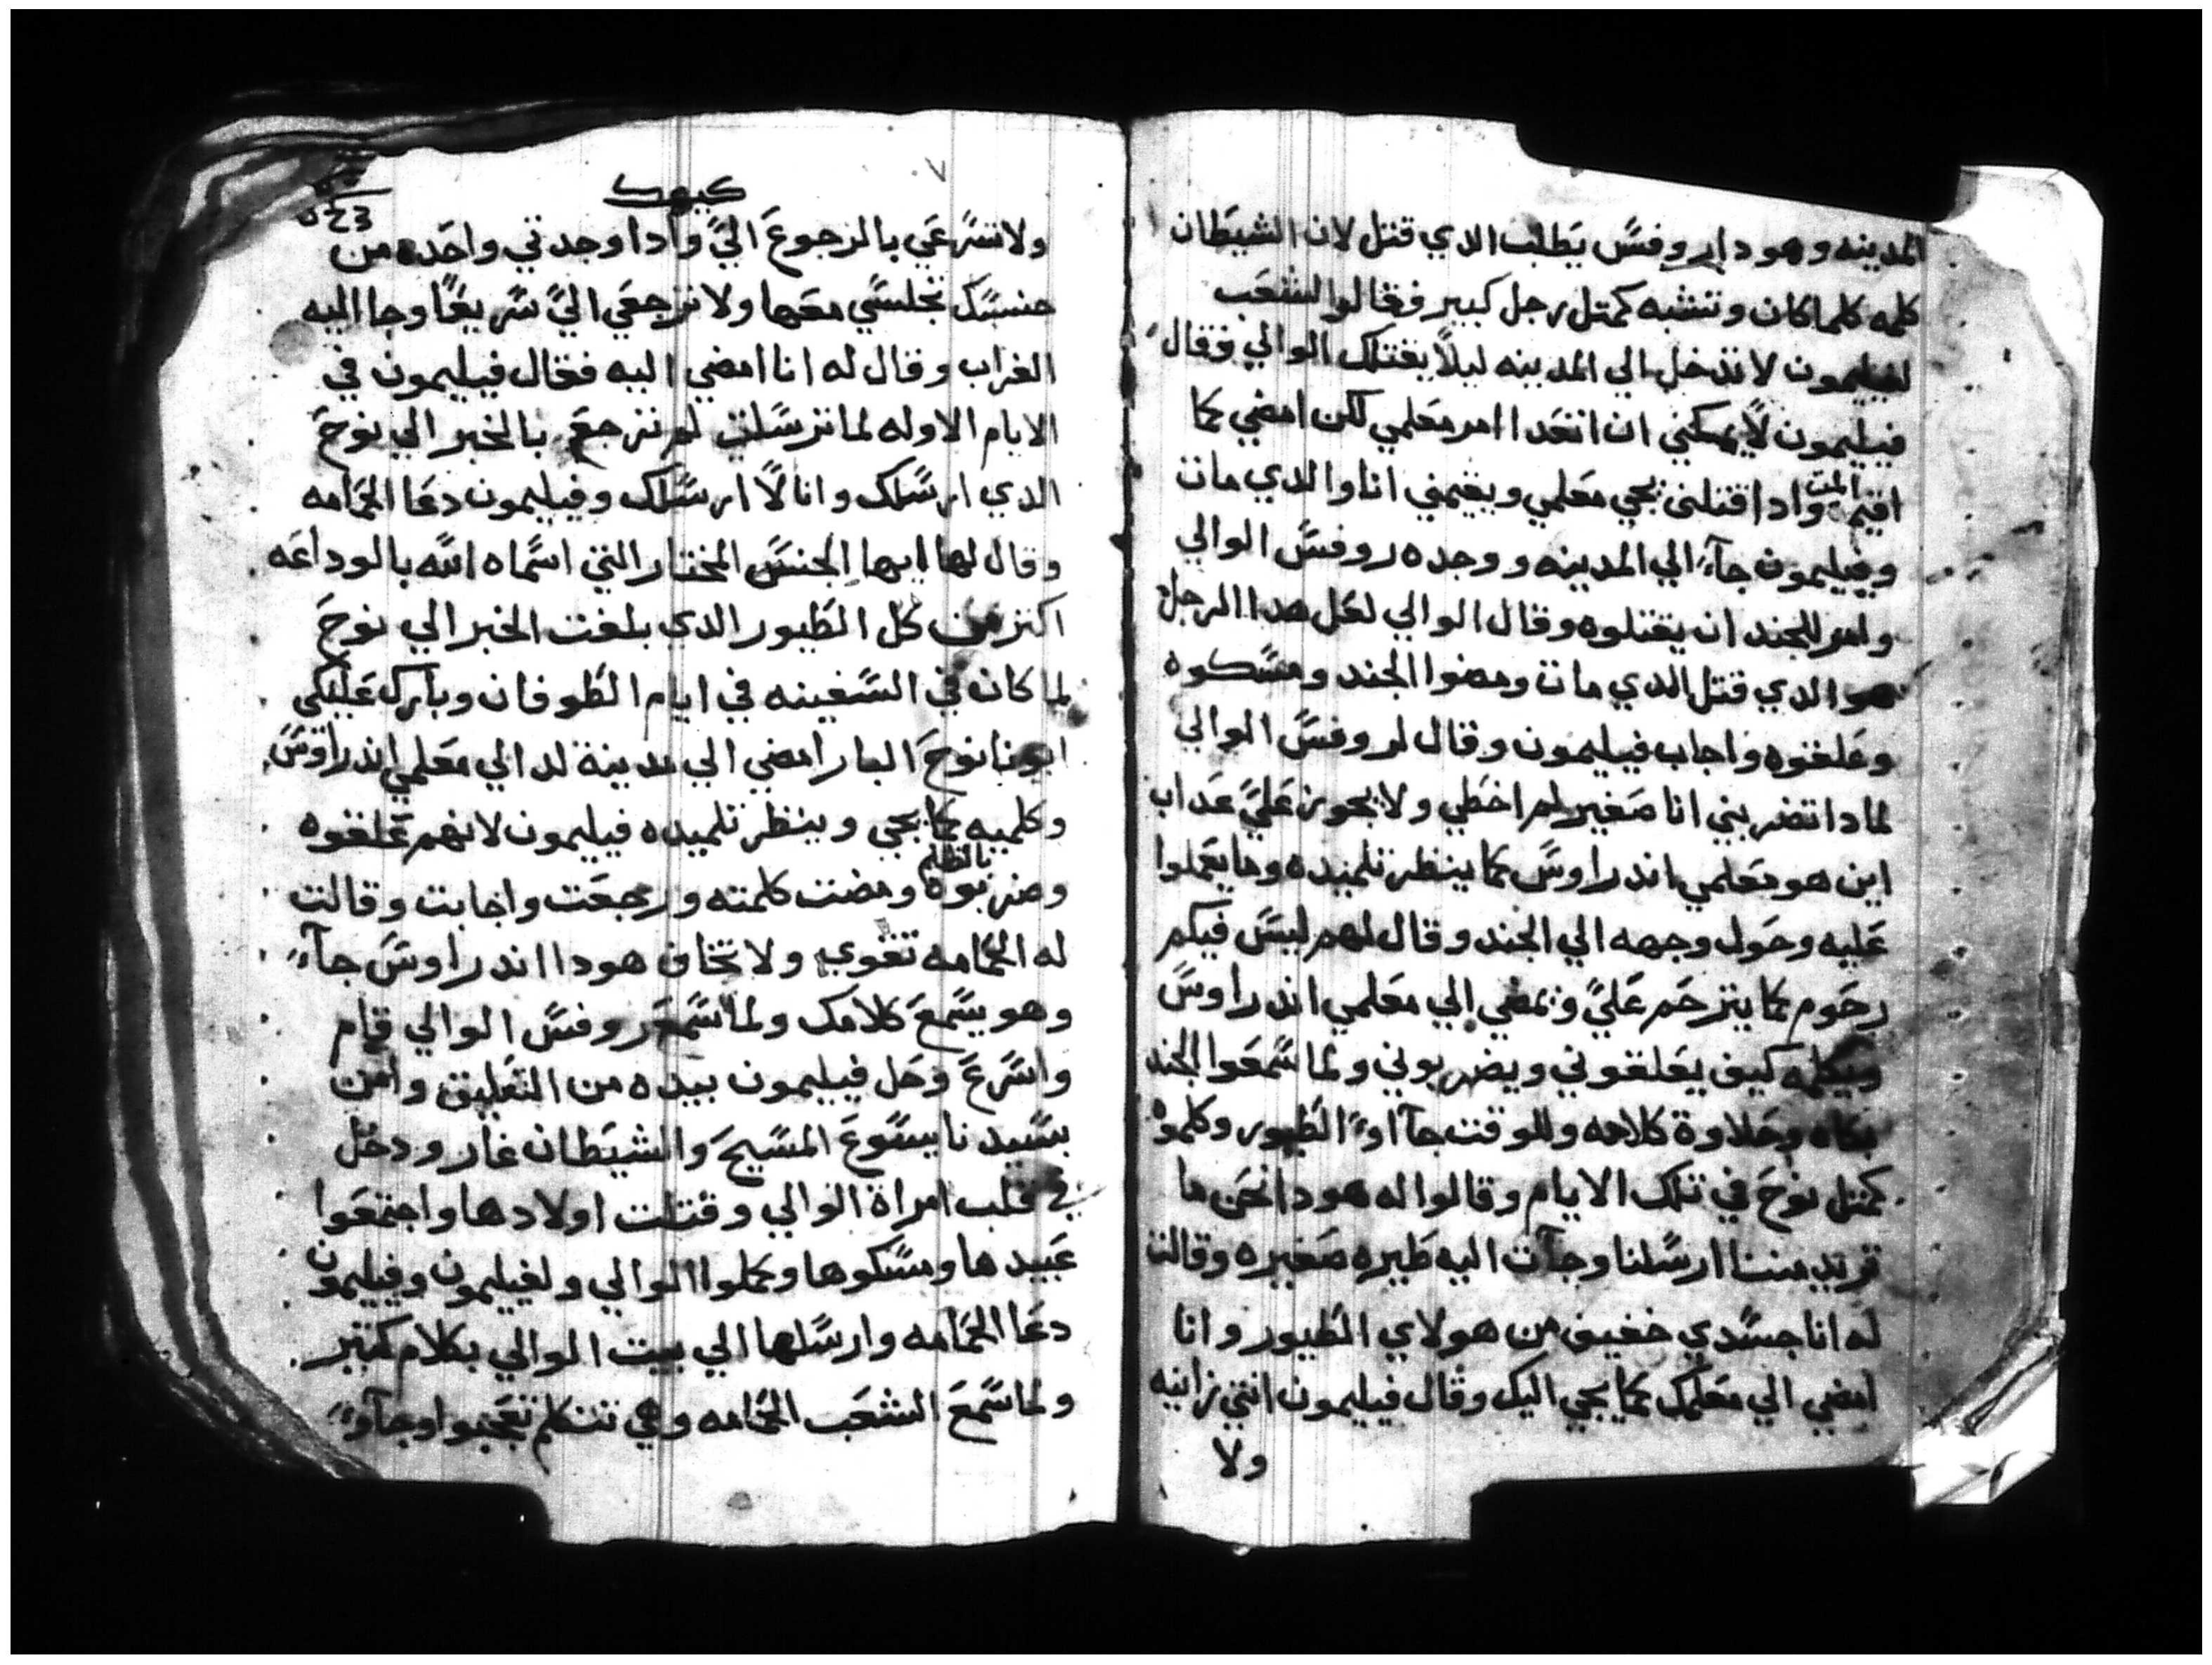 المدينه وهودا روفس يطلب الدي قتل لان الشيطان
كلمه كلما كان وتشبه كمتل رجل كبير فقالوا الشعب
لفيليمون لا تدخل الي المدينه ليلاً يقتلك الوالي وقال
فيليمون لا يمكني ان اتعدا امر معلمي لكن امضي كما
اقيم الميت وادا قتلني يجي معلمي ويقيمني انا والدي مات
وفيليمون جاء الي المدينه ووجده روفس الوالي
وامر للجند ان يقتلوه وقال الوالي لعل هدا الرجل
هو الدي قتل الدي مات ومضوا الجند ومسكوه
وعلقوه واجاب فيليمون وقال لروفس الوالي
لمادا تضربني انا صغير لم اخطي ولا يجوز عليَّ عداب
اين هو معلمي اندراوس كما ينظر تلميده وما يعملوا
عليه وحول وجهه الي الجند وقال لهم ليس فيكم
رحوم كما يترحم عليَّ ويمضي الي معلمي اندراوس
ويكلمه كيف يعلقوني ويضربوني ولما سمعوا الجند
بكاه وحلاوة كلامه وللوقت جآاوا الطيور وكلموه
كمتل نوح في تلك الايام وقالوا له هودا نحن ما
تريد مننا ارسلنا وجآت اليه طيره صغيره وقالت
له انا جسدي خفيف من هولاي الطيور وانا
امضي الي معلمك كما يجي اليك وقال فيليمون انتي زانيه
ولا
كيهك
ولا تسرعي بالرجوع اليَّ وادا وجدتي واحده من
جنسك تجلسي معها ولا ترجعي اليَّ سريعًا وجا اليه
الغراب وقال له انا امضي اليه فقال فيليمون في
الايام الاوله لما ترسلت لم ترجع بالخبر الي نوح
الدي ارسلك وانا لا ارسلك وفيليمون دعا الحمامه
وقال لها ايها الجنس المختار التي اسماه الله بالوداعه
اكتر من كل الطيور الدي بلغت الخبر الي نوح
لما كان في السفينه في ايام الطوفان وبارك عليكي
ابونا نوح البار امضي الي مدينة لد الي معلمي اندراوس
وكلميه كما يجي وينظر تلميده فيليمون لانهم علقوه
وضربوه بالظلم ومضت كلمته ورجعت واجابت وقالت
له الحمامه تقوي ولا تخاف هودا اندراوس جاء
وهو يسمع كلامك ولما سمع روفس الوالي قام
واسرع وحل فيليمون بيده من التعليق وامن
بسيدنا يسوع المسيح والشيطان غار ودخل
في قلب امراة الوالي وقتلت اولادها واجتمعوا
عبيدها ومسكوها وكملوا الوالي ولفيليمون وفيليمون
دعا الحمامه وارسلها الي بيت الوالي بكلام كتير
ولما سمع الشعب الحمامه وهي تتكلم تعجبوا وجآوا